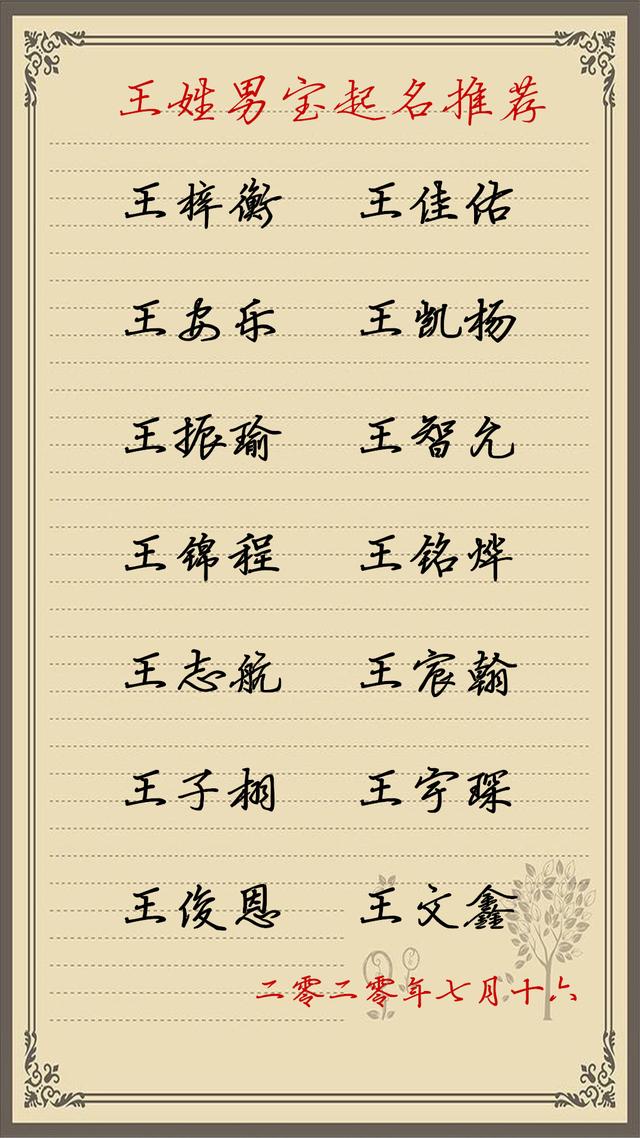 王姓男宝起名推荐
王梓衡 王佳佑
王安乐 王凯杨
王振瑜 王智允
王锦程 王铭烨
王志航 王宸翰
王子栩 王宇琛
王俊恩 王文鑫
二零二零年七月十六